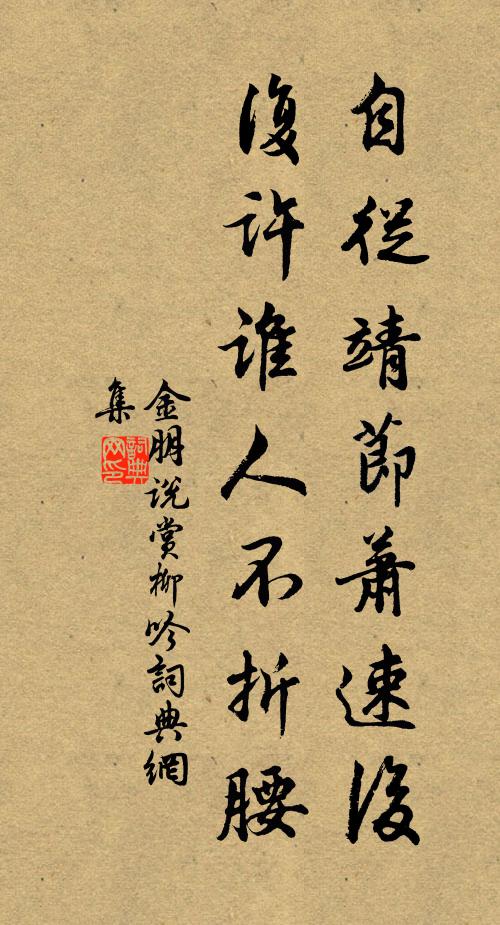 自從靖節蕭速後
復許誰人不折腰
金朋说賞柳吟詞典網
集
詞典
网印